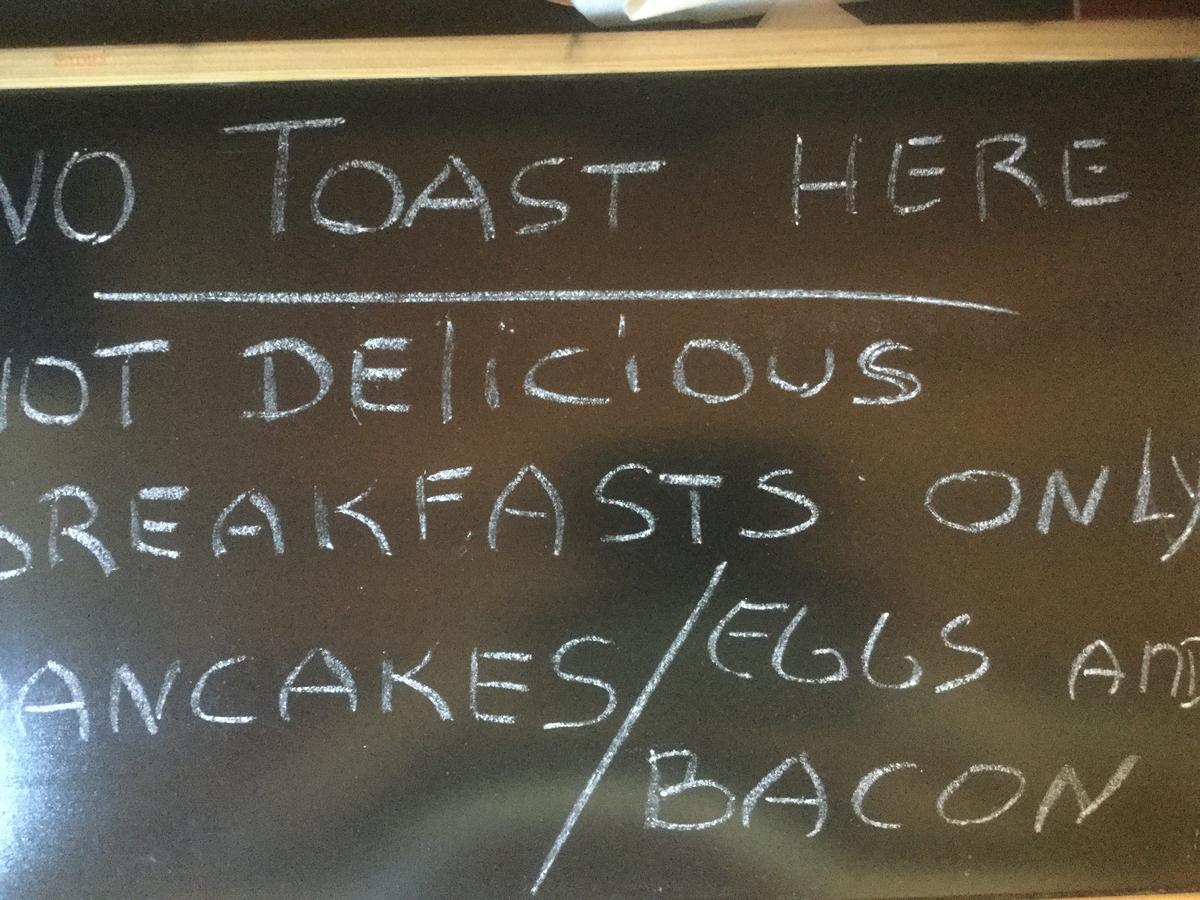 NO TOAST HERE
NOT DElicioUS
BREAKFASTS ONLY
PANCAKES/EGGS AnD
BACON